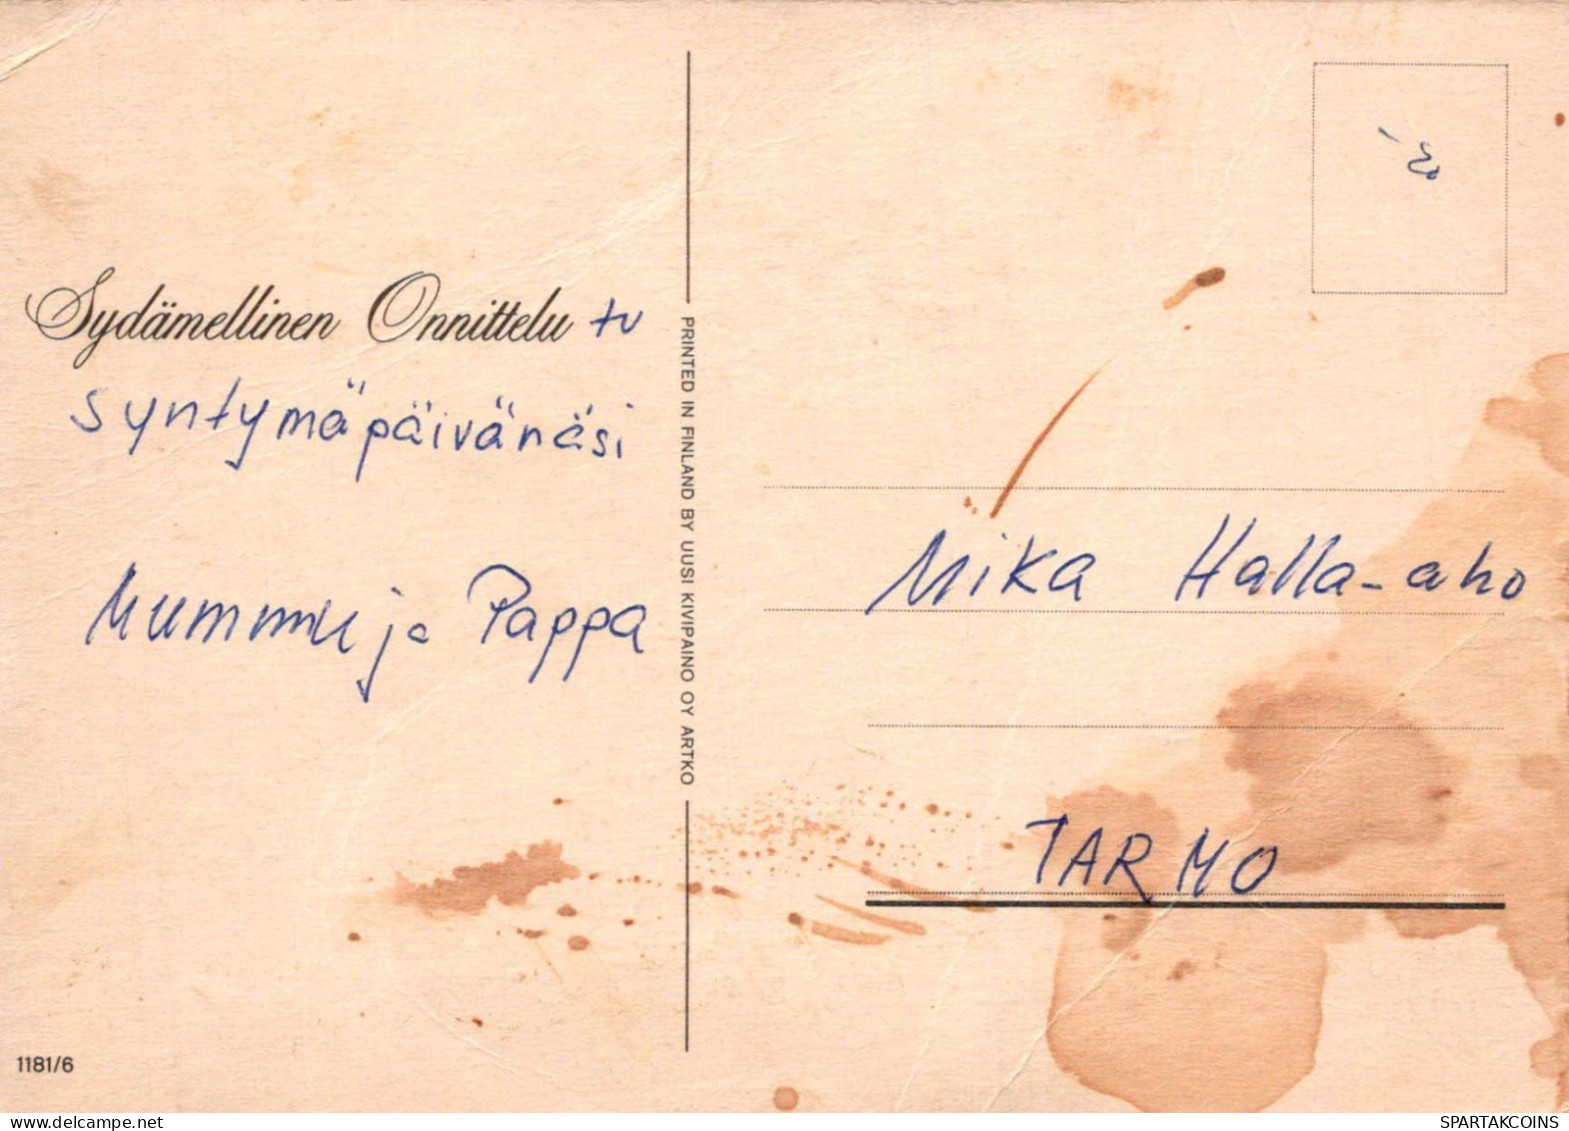 Sydämellinen Onnittelu tu
syntymäpäivänäsi
Mummu ja Pappa
1181/6
PRINTED IN FINLAND BY UUSI KIVIPAINO OY ARTKO
Mika Halla-aho
TARMO
delcampe.net
SPARTAKCOINS